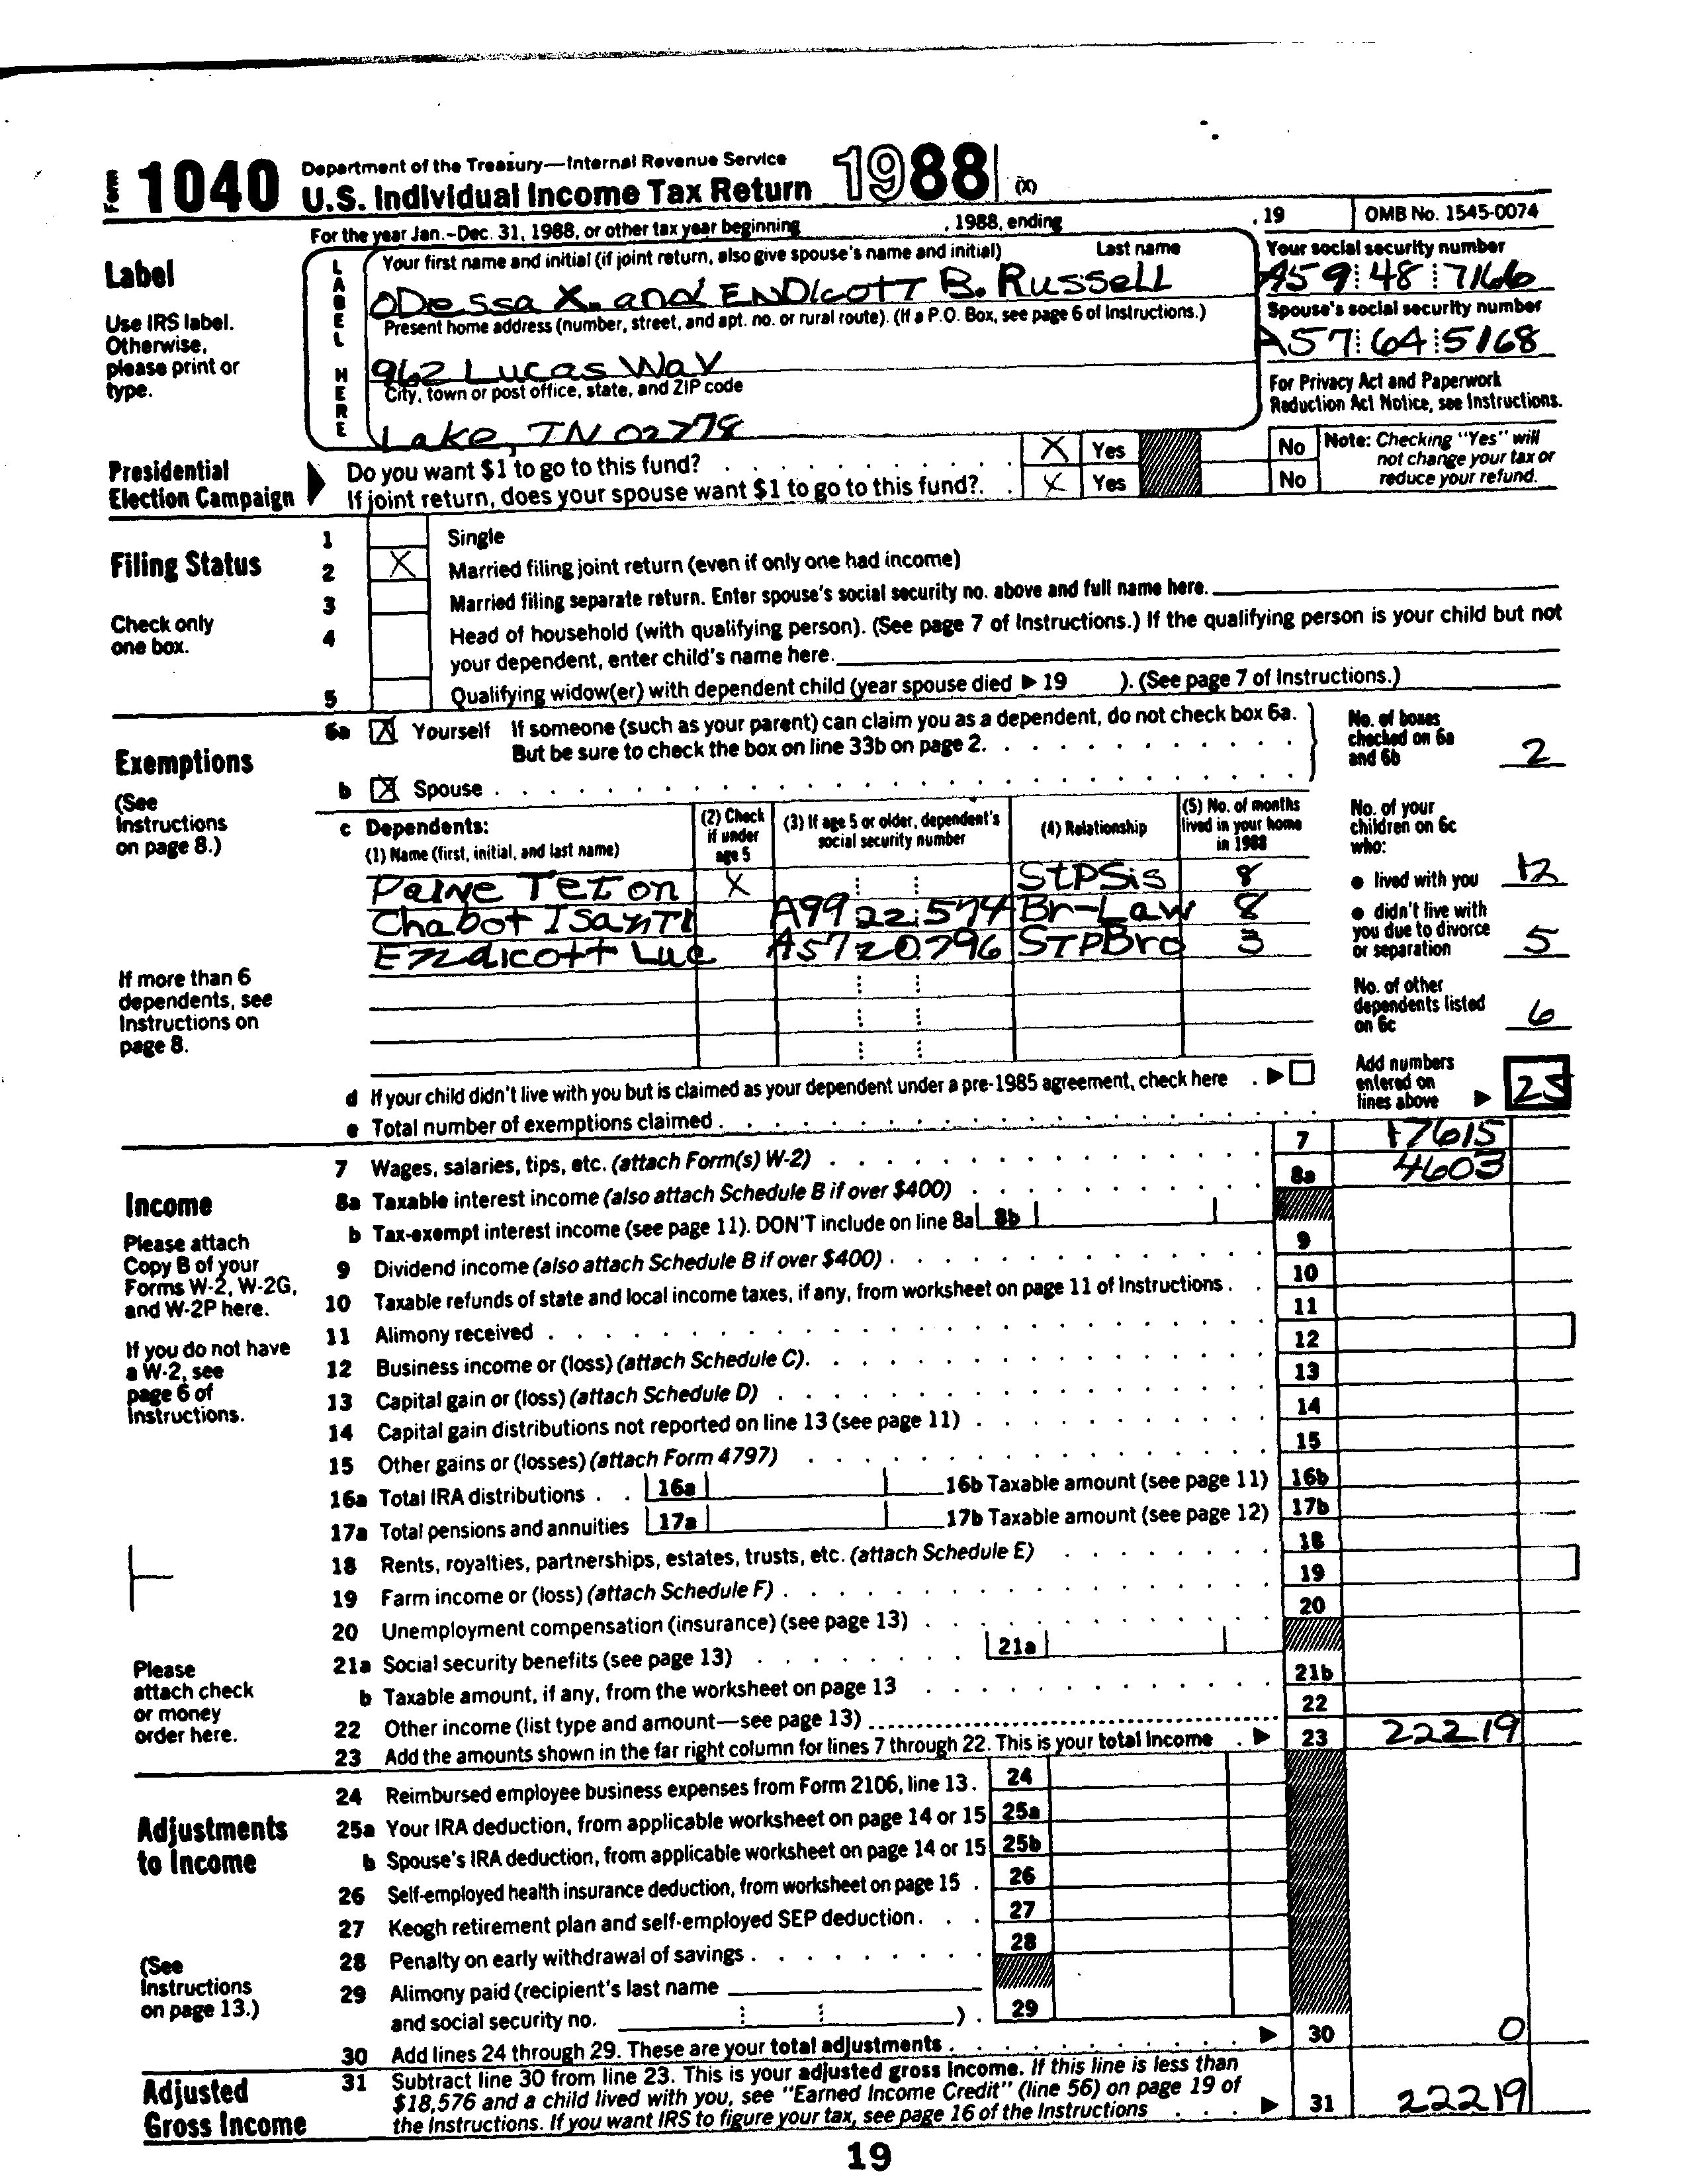 Form 1040 Department of the Treasury—Internal Revenue Service
U.S. Individual Income Tax Return 1988 (X)
For the year Jan.–Dec. 31, 1988, or other tax year beginning , 1988, ending , 19 OMB No. 1545-0074
Label
Use IRS label.
Otherwise,
please print or
type.
LABEL HERE
Your first name and initial (if joint return, also give spouse's name and initial) Last name
ODessa X. and ENDIcoTT B. RussELL
Present home address (number, street, and apt. no. or rural route). (If a P.O. Box, see page 6 of Instructions.)
962 Lucas Way
City, town or post office, state, and ZIP code
Lake, TN 02778
Your social security number
A59 48 7166
Spouse's social security number
A57 64 5168
For Privacy Act and Paperwork
Reduction Act Notice, see Instructions.
Presidential
Election Campaign
Do you want $1 to go to this fund? X Yes No
If joint return, does your spouse want $1 to go to this fund? X Yes No
Note: Checking "Yes" will
not change your tax or
reduce your refund.
Filing Status
Check only
one box.
1 Single
2 X Married filing joint return (even if only one had income)
3 Married filing separate return. Enter spouse's social security no. above and full name here.
4 Head of household (with qualifying person). (See page 7 of Instructions.) If the qualifying person is your child but not
your dependent, enter child's name here.
5 Qualifying widow(er) with dependent child (year spouse died ▶ 19 ). (See page 7 of Instructions.)
Exemptions
(See
Instructions
on page 8.)
6a X Yourself If someone (such as your parent) can claim you as a dependent, do not check box 6a.
But be sure to check the box on line 33b on page 2.
b X Spouse
No. of boxes
checked on 6a
and 6b 2
c Dependents:
(1) Name (first, initial, and last name)
(2) Check
if under
age 5
(3) If age 5 or older, dependent's
social security number
(4) Relationship
(5) No. of months
lived in your home
in 1988
Paine Teton X StPSis 8
Chabot Isanti A99 22 574 Br-Law 8
Endicott Luc A57 20796 STPBro 3
If more than 6
dependents, see
Instructions on
page 8.
No. of your
children on 6c
who:
• lived with you 12
• didn't live with
you due to divorce
or separation 5
No. of other
dependents listed
on 6c 6
Add numbers
entered on
lines above ▶ 25
d If your child didn't live with you but is claimed as your dependent under a pre-1985 agreement, check here ▶
e Total number of exemptions claimed
Income
Please attach
Copy B of your
Forms W-2, W-2G,
and W-2P here.
If you do not have
a W-2, see
page 6 of
Instructions.
Please
attach check
or money
order here.
7 Wages, salaries, tips, etc. (attach Form(s) W-2) 7 17615
8a Taxable interest income (also attach Schedule B if over $400) 8a 4603
b Tax-exempt interest income (see page 11). DON'T include on line 8a 8b
9 Dividend income (also attach Schedule B if over $400) 9
10 Taxable refunds of state and local income taxes, if any, from worksheet on page 11 of Instructions 10
11 Alimony received 11
12 Business income or (loss) (attach Schedule C) 12
13 Capital gain or (loss) (attach Schedule D) 13
14 Capital gain distributions not reported on line 13 (see page 11) 14
15 Other gains or (losses) (attach Form 4797) 15
16a Total IRA distributions 16a 16b Taxable amount (see page 11) 16b
17a Total pensions and annuities 17a 17b Taxable amount (see page 12) 17b
18 Rents, royalties, partnerships, estates, trusts, etc. (attach Schedule E) 18
19 Farm income or (loss) (attach Schedule F) 19
20 Unemployment compensation (insurance) (see page 13) 20
21a Social security benefits (see page 13) 21a
b Taxable amount, if any, from the worksheet on page 13 21b
22 Other income (list type and amount—see page 13) 22
23 Add the amounts shown in the far right column for lines 7 through 22. This is your total income ▶ 23 22219
Adjustments
to Income
(See
Instructions
on page 13.)
24 Reimbursed employee business expenses from Form 2106, line 13. 24
25a Your IRA deduction, from applicable worksheet on page 14 or 15 25a
b Spouse's IRA deduction, from applicable worksheet on page 14 or 15 25b
26 Self-employed health insurance deduction, from worksheet on page 15 26
27 Keogh retirement plan and self-employed SEP deduction 27
28 Penalty on early withdrawal of savings 28
29 Alimony paid (recipient's last name
and social security no. ) 29
30 Add lines 24 through 29. These are your total adjustments ▶ 30 0
Adjusted
Gross Income
31 Subtract line 30 from line 23. This is your adjusted gross income. If this line is less than
$18,576 and a child lived with you, see "Earned Income Credit" (line 56) on page 19 of
the Instructions. If you want IRS to figure your tax, see page 16 of the Instructions ▶ 31 22219
19